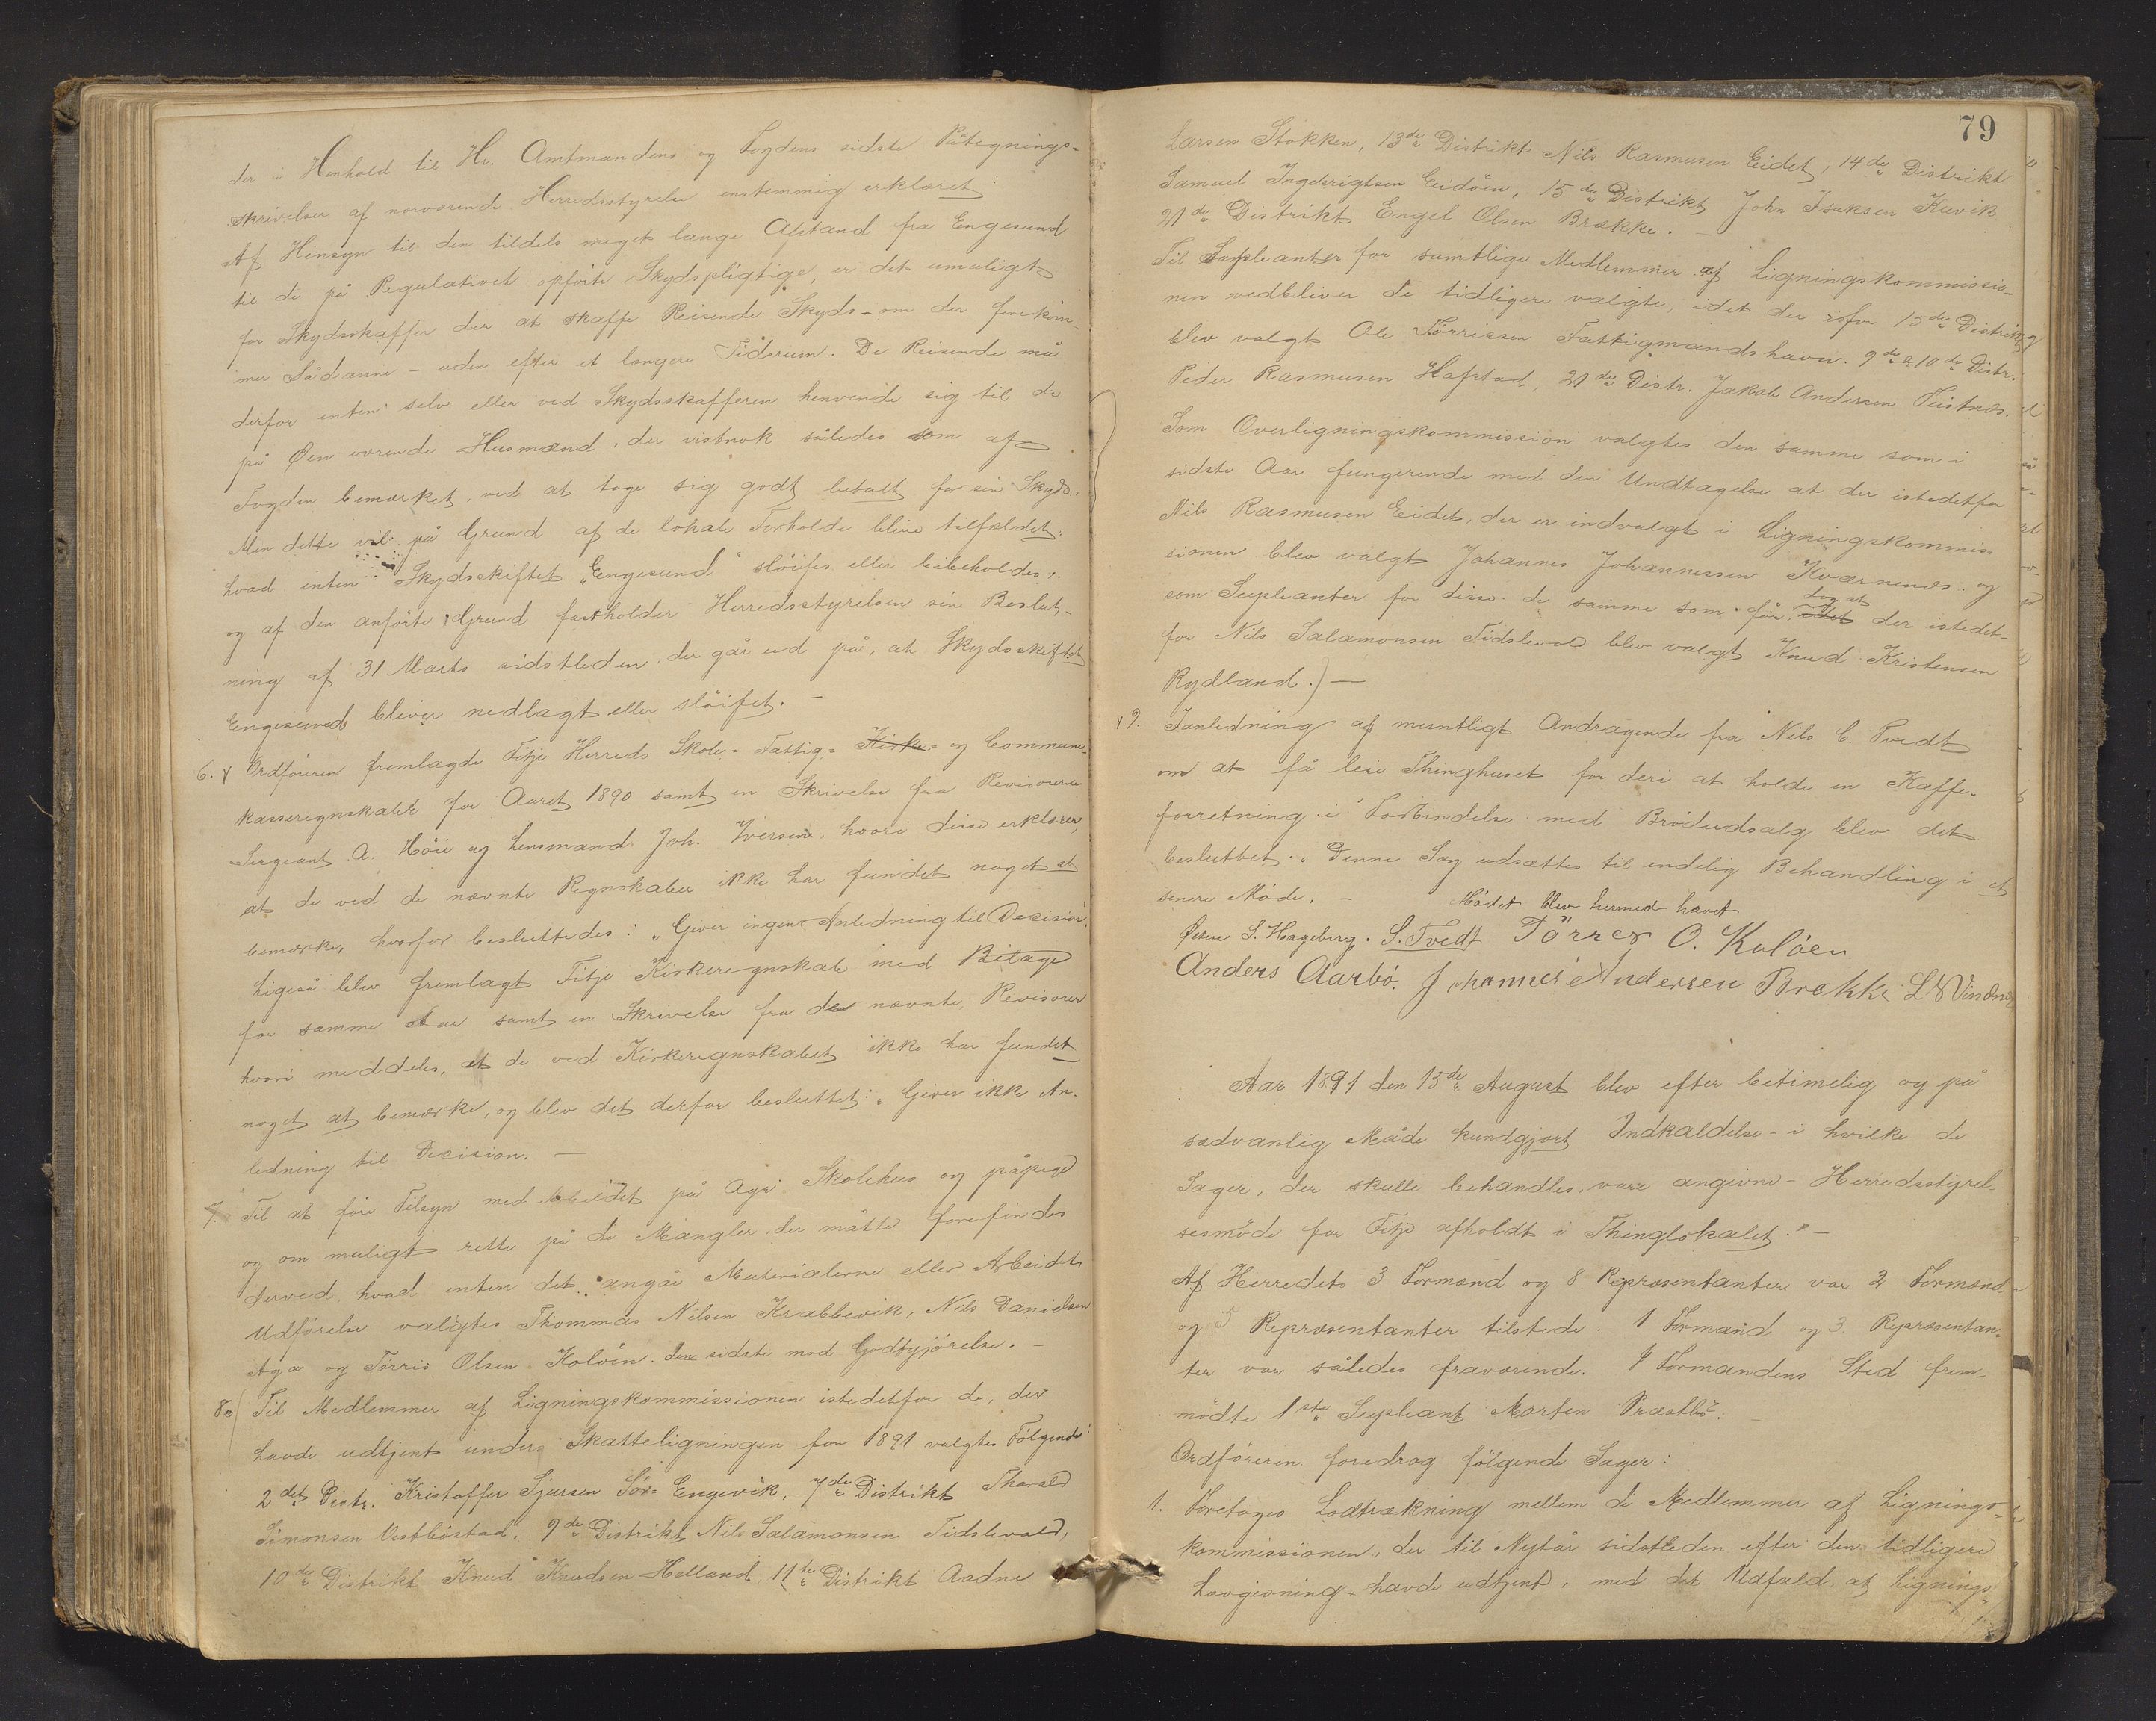 der i Henhold til Hr. Amtmandens og Fogdens sidste Påtegnings-
skrivelser af nærværende Herredsstyrelse enstemmig erklæret:
Af Hensyn til den tildels meget lange Afstand fra Engesund
til de på Regulativet opførte Skydspligtige, er det umuligt
for Skydsskaffer der at skaffe Reisende Skyds – om der forekom-
mer Sådanne – uden efter et længere Tidsrum. De Reisende må
derfor enten selv eller ved Skydsskafferen henvende sig til de
på Øen værende Husmænd, der vistnok således som af
Fogden bemærket, ved at tage sig godt betalt for sin Skyds.
Men dette vil på Grund af de lokale Forholde blive tilfældet,
hvad enten Skydsskiftet "Engesund" sløifes eller bibeholdes,
og af den anførte Grund fastholder Herredsstyrelsen sin Beslut-
ning af 31 Marts sidstleden der går ud på, at Skydsskiftet
Engesund bliver nedlagt eller sløifet. –
6. Ordføreren fremlagde Fitje Herreds Skole- Fattig- Kirke- og Commune-
kasseregnskaber for Aaret 1890 samt en Skrivelse fra Revisorerne
Sergeant A. Høie og Lensmand Joh. Iversen, hvori disse erklærer,
at de ved de nævnte Regnskaber ikke har fundet noget at
bemærke, hvorfor besluttedes: "Giver ingen Anledning til Decision".
Ligeså blev fremlagt Fitje Kirkeregnskab med Bilage
for samme Aar samt en Skrivelse fra de nævnte Revisorer
hvori meddeles, at de ved Kirkeregnskabet ikke har fundet
noget at bemærke, og blev det derfor besluttet: "Giver ikke An-
ledning til Decision. –
7. Til at føre Tilsyn med Arbeidet på Aga Skolehus og påpege
og om muligt rette på de Mangler der måtte forefindes
derved, hvad enten det angår Materialerne eller Arbeidets
Udførelse valgtes Thommas Nilsen Krabbevik, Nils Danielsen
Aga og Tørris Olsen Koløen. den sidste mod Godtgjørelse. –
8. Til Medlemmer af Ligningskommissionen istedetfor de, der
havde udtjent under Skatteligningen for 1891 valgtes Følgende:
2det Distr. Kristoffer Sjursen Sør-Engevik, 7de Distrikt Tharald
Simonsen Vestbøstad, 9de Distrikt Nils Salamonsen Tidslevold,
10de Distrikt Knud Knudsen Helland 11te Distrikt Aadne
79
Larsen Stokken, 13de Distrikt Nils Rasmusen Eidet, 14de Distrikt
Samuel Ingebrigtsen Eidøen, 15de Distrikt John Isaksen Kuvik
21de Distrikt Engel Olsen Brække. –
Til Suppleanter for samtlige Medlemmer af Ligningskommissio-
nen vedbliver de tidligere valgte, idet der isfor 15de Distrikt
blev valgt Ole Tørrissen Fattigmandshavn. 9de & 10de Distr.
Peder Rasmusen Hafstad, 21de Distr. Jakob Andersen Teistnæs.
Som Overligningskommission valgtes den samme som i
sidste Aar fungerende med den Undtagelse at der istedetfor
Nils Rasmusen Eidet, der er indvalgt i Ligningskommis-
sionen blev valgt Johannes Johannessen Kværnenæs og
som Supleanter for disse de samme som før, idet dog at der istedet-
for Nils Salamonsen Tidslevold blev valgt Knud Kristensen
Rydland.) –
9. I anledning af muntligt Andragende fra Nils C. Tvedt
om at få leie Thinghuset for deri at holde en Kaffe-
forretning i Forbindelse med Brødudsalg blev det
besluttet: Denne Sag udsættes til endelig Behandling i et
senere Møde. –
Mødet blev hermed hævet
S. Hageberg. S. Tvedt Tørres O. Koløen
Anders Aarbø. Johannes Andersen Brække
Aar 1891 den 15de August blev efter betimelig og på
sædvanlig Måde kundgjort Indkaldelse – i hvilke de
Sager, der skulle behandles, vare angivne – Herredsstyrel-
sesmøde for Fitje afholdt i Thinglokalet. –
Af Herredets 3 Formænd og 8 Repræsentanter var 2 Formænd
og 5 Repræsentanter tilstede. 1 Formand og 3 Repræsentan-
ter var således fraværende. I Formandens Sted frem-
mødte 1ste Supleant Morten Præstbø. –
Ordføreren foredrog følgende Sager:
1. Foretoges Lodtrækning mellem de Medlemmer af Lignings-
kommissionen, der til Nytår sidstleden efter den tidligere
Lovgivning havde udtjent, med det Udfald at Lignings-